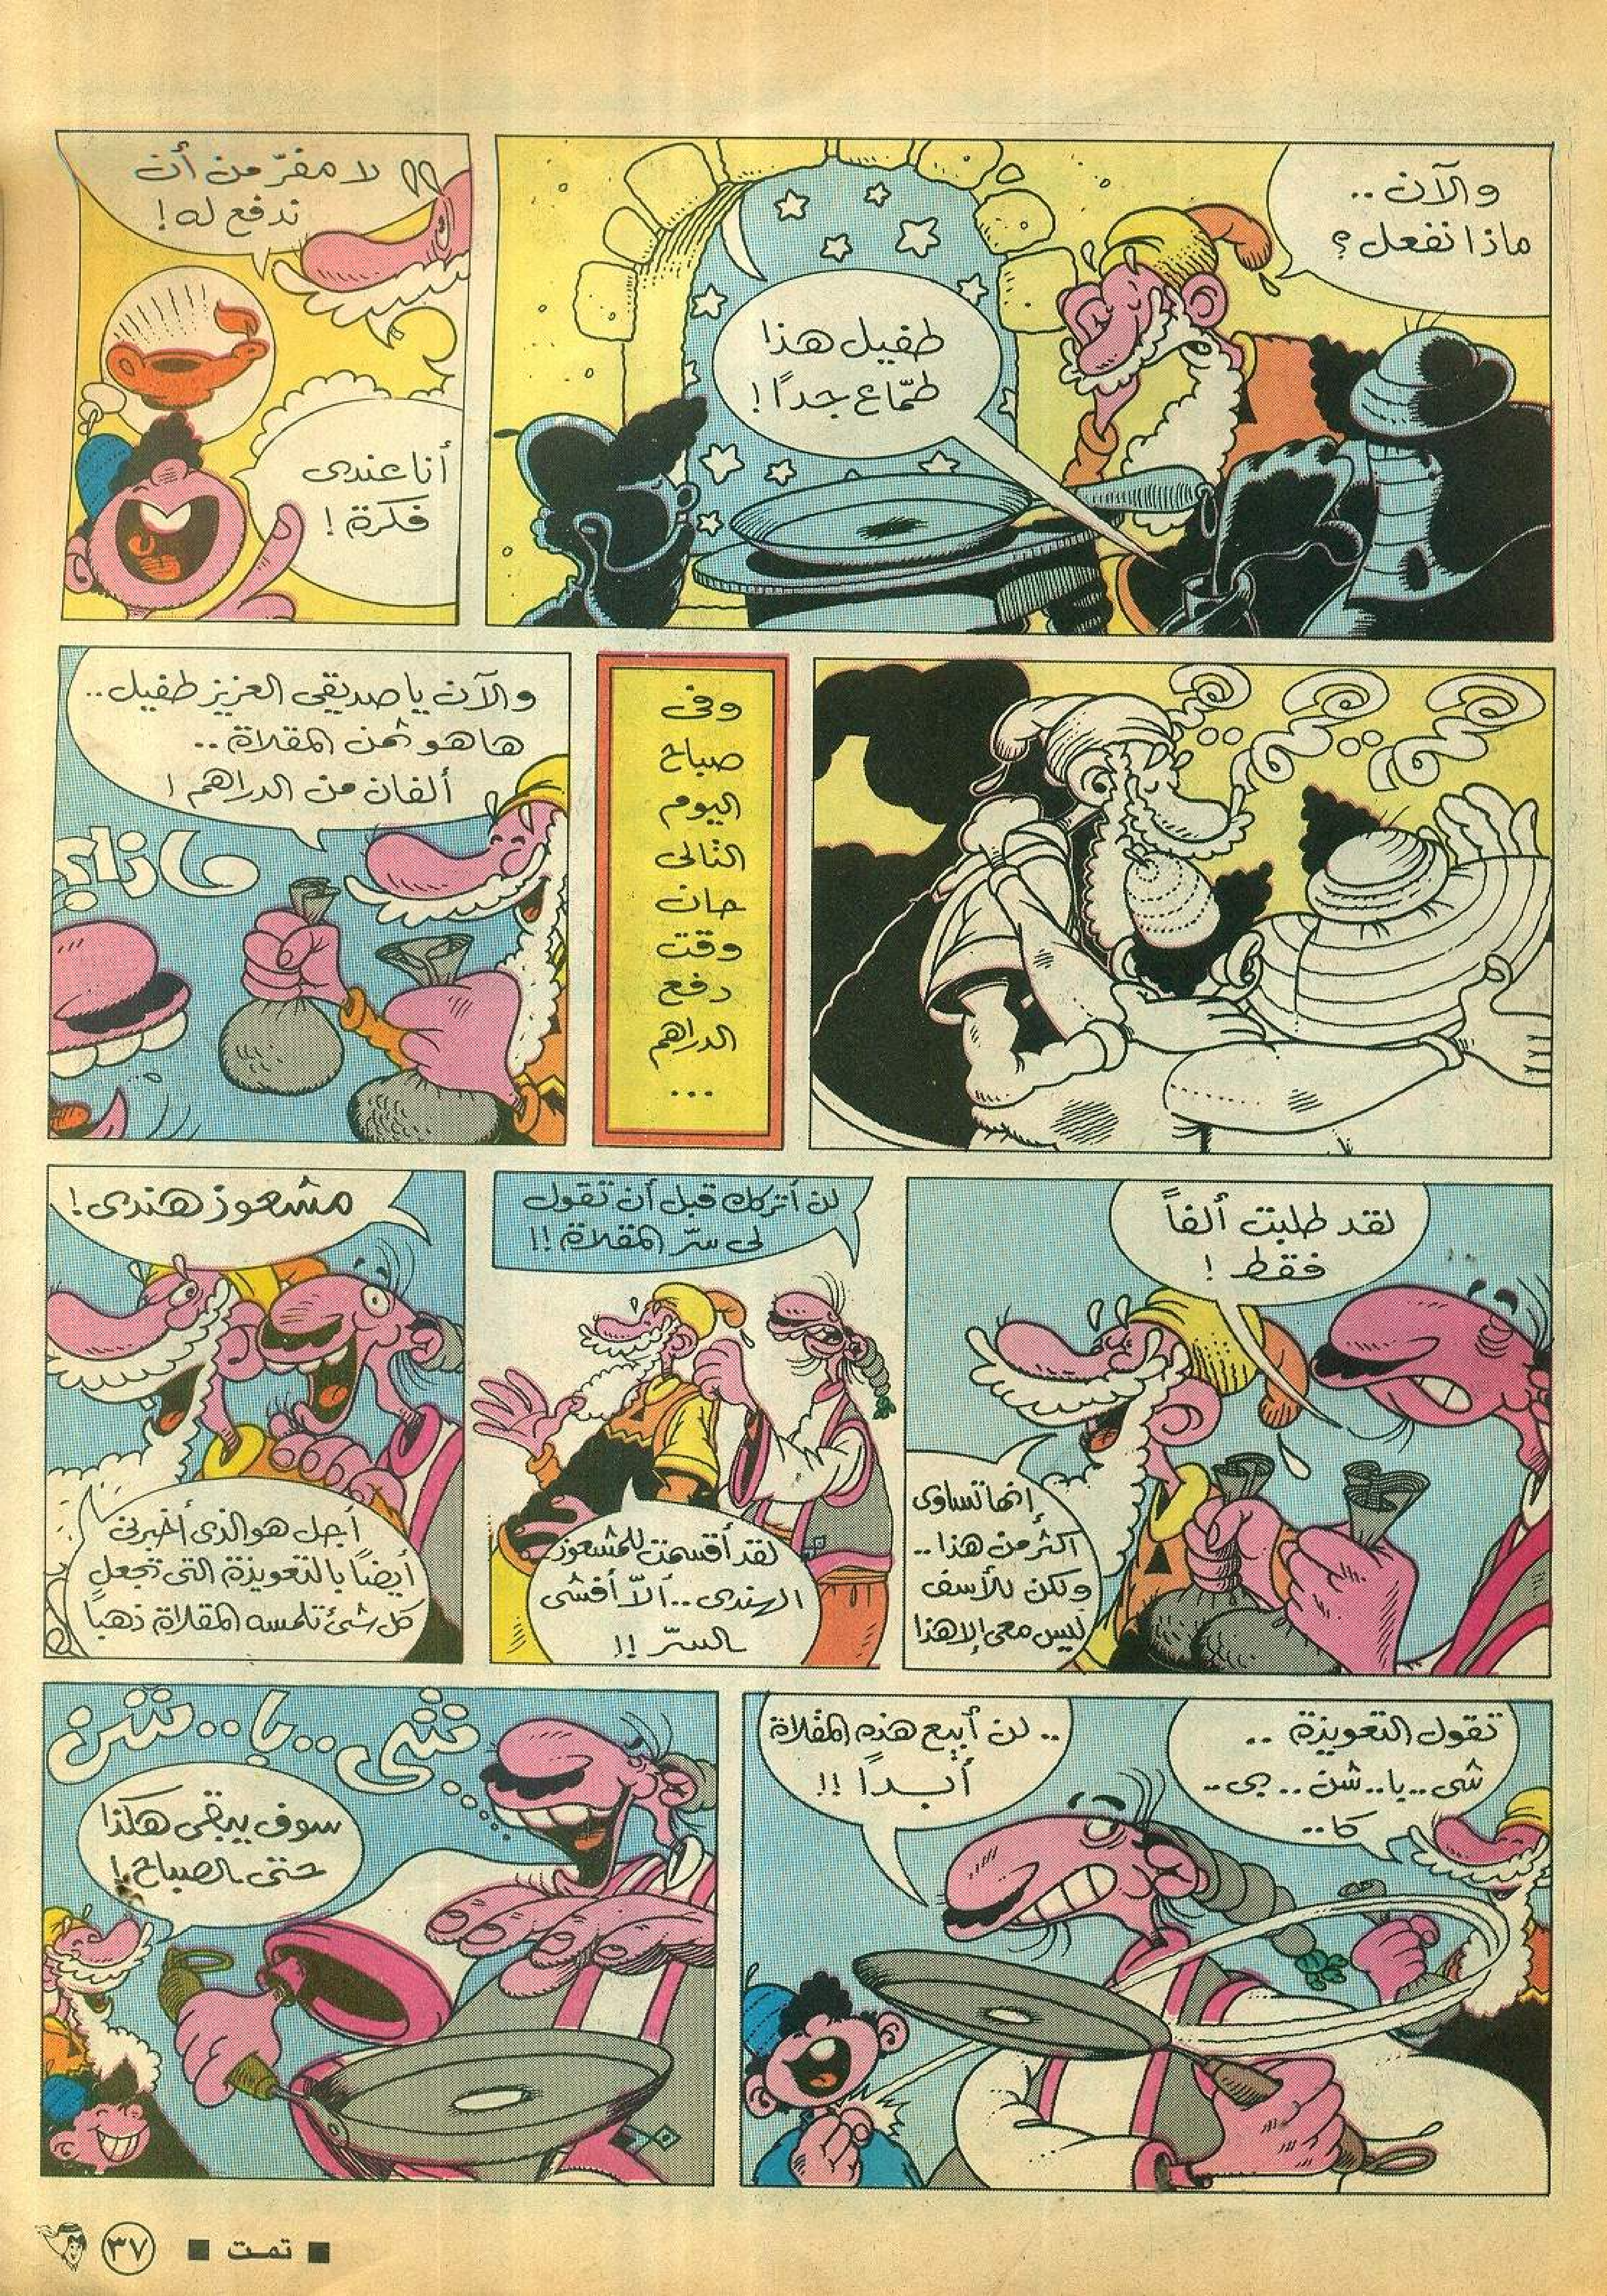 والآن ..
ماذا نفعل ؟
طفيل هذا
طمّاع جداً !
لا مفرّ من أن
ندفع له !
أنا عندى
فكرة !
وفى
صباح
اليوم
التالى
حان
وقت
دفع
الدراهم
...
والآن يا صديقى العزيز طفيل ..
ها هو ثمن المقلاة ..
ألفان من الدراهم !
ماذا؟
لقد طلبت ألفاً
فقط !
إنها تساوى
أكثر من هذا ..
ولكن للأسف
ليس معى إلا هذا
لن أتركك قبل أن تقول
لى سرّ المقلاة !!
لقد أقسمت للمشعوذ
الهندى .. ألاّ أفشى
السرّ !!
مشعوذ هندى !
أجل هو الذى أخبرنى
أيضاً بالتعويذة التى تجعل
كل شئ تلمسه المقلاة ذهباً
تقول التعويذة ..
شى .. يا .. شن .. بى ..
كا ..
.. لن أبيع هذه المقلاة
أبداً !!
شى .. يا .. شن
سوف يبقى هكذا
حتى الصباح !
■ تمت ■
٣٧